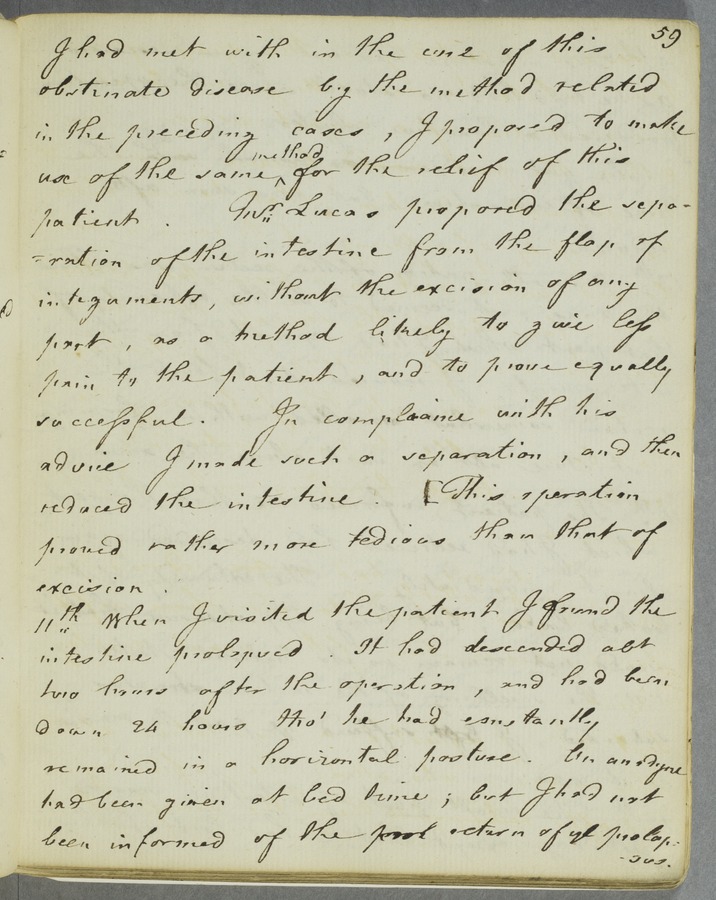 59
I had met with in the cure of this
obstinate disease by the method related
in the preceding cases, I proposed to make
method
use of the same ^ for the relief of this
patient. Mr. Lucas proposed the sepa-
=ration of the intestine from the flap of
integuments, without the excision of any
part, as a method likely to give less
pain to the patient, and to prove equally
successful. In compliance with his
advice I made such a separation, and then
reduced the intestine. [This operation
proved rather more tedious than that of
excision.
11th When I visited the patient I found the
intestine prolapsed. It had descended abt
two hours after the operation, and had been
down 24 hours tho' he had constantly
remained in a horizontal posture. An anodyne
had been given at bed time; but I had not
been informed of the return of ye prolap-
-sus.